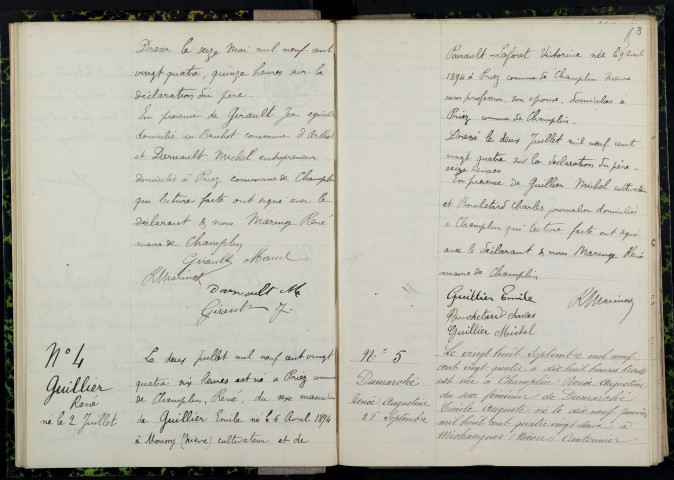 Dressé le seize Mai mil neuf cent
vingt quatre, quinze heures sur la
déclaration du père.
En présence de Girault Jean
domicilié au commune d'
et Darnault Michel entrepreneur
domicilié à Priez commune de Champlin
qui lecture faite ont signé avec le
déclarant & nous Marinot René
maire de Champlin
Girault Marcel
R Marinot
Darnault M
Girault J
N° 4
Guillier
René
né le 2 Juillet
Le deux juillet mil neuf cent vingt
quatre six heures est né à Priez commune
de Champlin, René, du sexe masculin
de Guillier Emile né le 6 Avril 1894
à (Nièvre) cultivateur et de
13
Laforet Victorine née le 9 Avril
1894 à Priez commune de Champlin Nièvre
sans profession, son épouse, domiciliés à
Priez commune de Champlin.
Dressé le deux Juillet mil neuf cent
vingt quatre sur la déclaration du père
seize heures
En présence de Guillier Michel cultivateur
et Bouchetard Charles journalier domiciliés
à Champlin qui lecture faite ont signé
avec le déclarant & nous Marinot René
maire de Champlin
Guillier Emile
R Marinot
Bouchetard Charles
Guillier Michel
N° 5
Dumarché
Renée Augustine
28 Septembre
Le vingt huit Septembre mil neuf
cent vingt quatre à dix huit heures
est née à Champlin Renée Augustine
du sexe féminin de Dumarché
Emile Auguste né le dix neuf janvier
mil huit cent quatre vingt
Nièvre Cantonnier